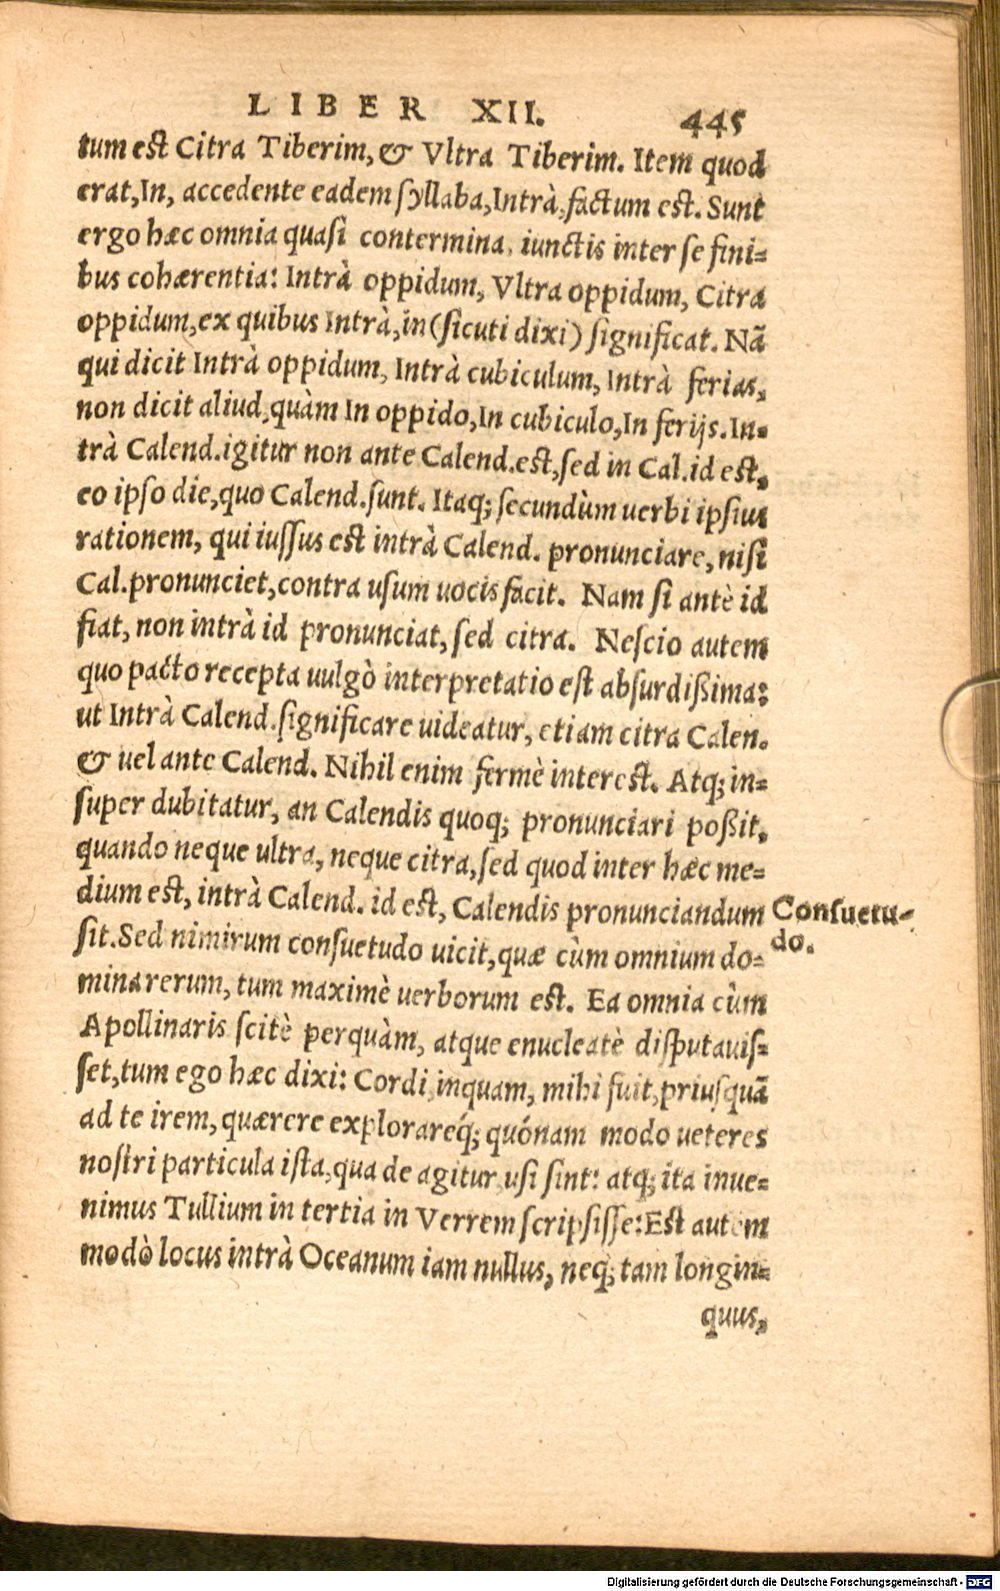 LIBER XII. 445
tum est Citra Tiberim, & Vltra Tiberim. Item quod
erat, In, accedente eadem syllaba, Intrà, factum est. Sunt
ergo hæc omnia quasi contermina, iunctis inter se fini-
bus cohærentia: Intrà oppidum, Vltra oppidum, Citra
oppidum, ex quibus Intrà, in (sicuti dixi) significat. Nã
qui dicit Intrà oppidum, Intrà cubiculum, Intrà ferias,
non dicit aliud, quàm In oppido, In cubiculo, In ferijs. In-
trà Calend. igitur non ante Calend. est, sed in Cal. id est,
eo ipso die, quo Calend. sunt. Itaq; secundùm uerbi ipsius
rationem, qui iussus est intrà Calend. pronunciare, nisi
Cal. pronunciet, contra usum uocis facit. Nam si antè id
fiat, non intrà id pronunciat, sed citra. Nescio autem
quo pacto recepta uulgò interpretatio est absurdißima:
ut Intrà Calend. significare uideatur, etiam citra Calen.
& uel ante Calend. Nihil enim fermè interest. Atq; in-
super dubitatur, an Calendis quoq; pronunciari poßit,
quando neque ultra, neque citra, sed quod inter hæc me-
dium est, intrà Calend. id est, Calendis pronunciandum
sit. Sed nimirum consuetudo uicit, quæ cùm omnium do-
mina rerum, tum maximè uerborum est. Ea omnia cùm
Apollinaris scitè perquàm, atque enucleatè disputauis-
set, tum ego hæc dixi: Cordi, inquam, mihi fuit, priusquã
ad te irem, quærere explorareq́; quónam modo ueteres
nostri particula ista, qua de agitur, usi sint: atq; ita inue-
nimus Tullium in tertia in Verrem scripsisse: Est autem
modò locus intrà Oceanum iam nullus, neq; tam longin-
quus,
Consuetu-
do.
Digitalisierung gefördert durch die Deutsche Forschungsgemeinschaft - DFG